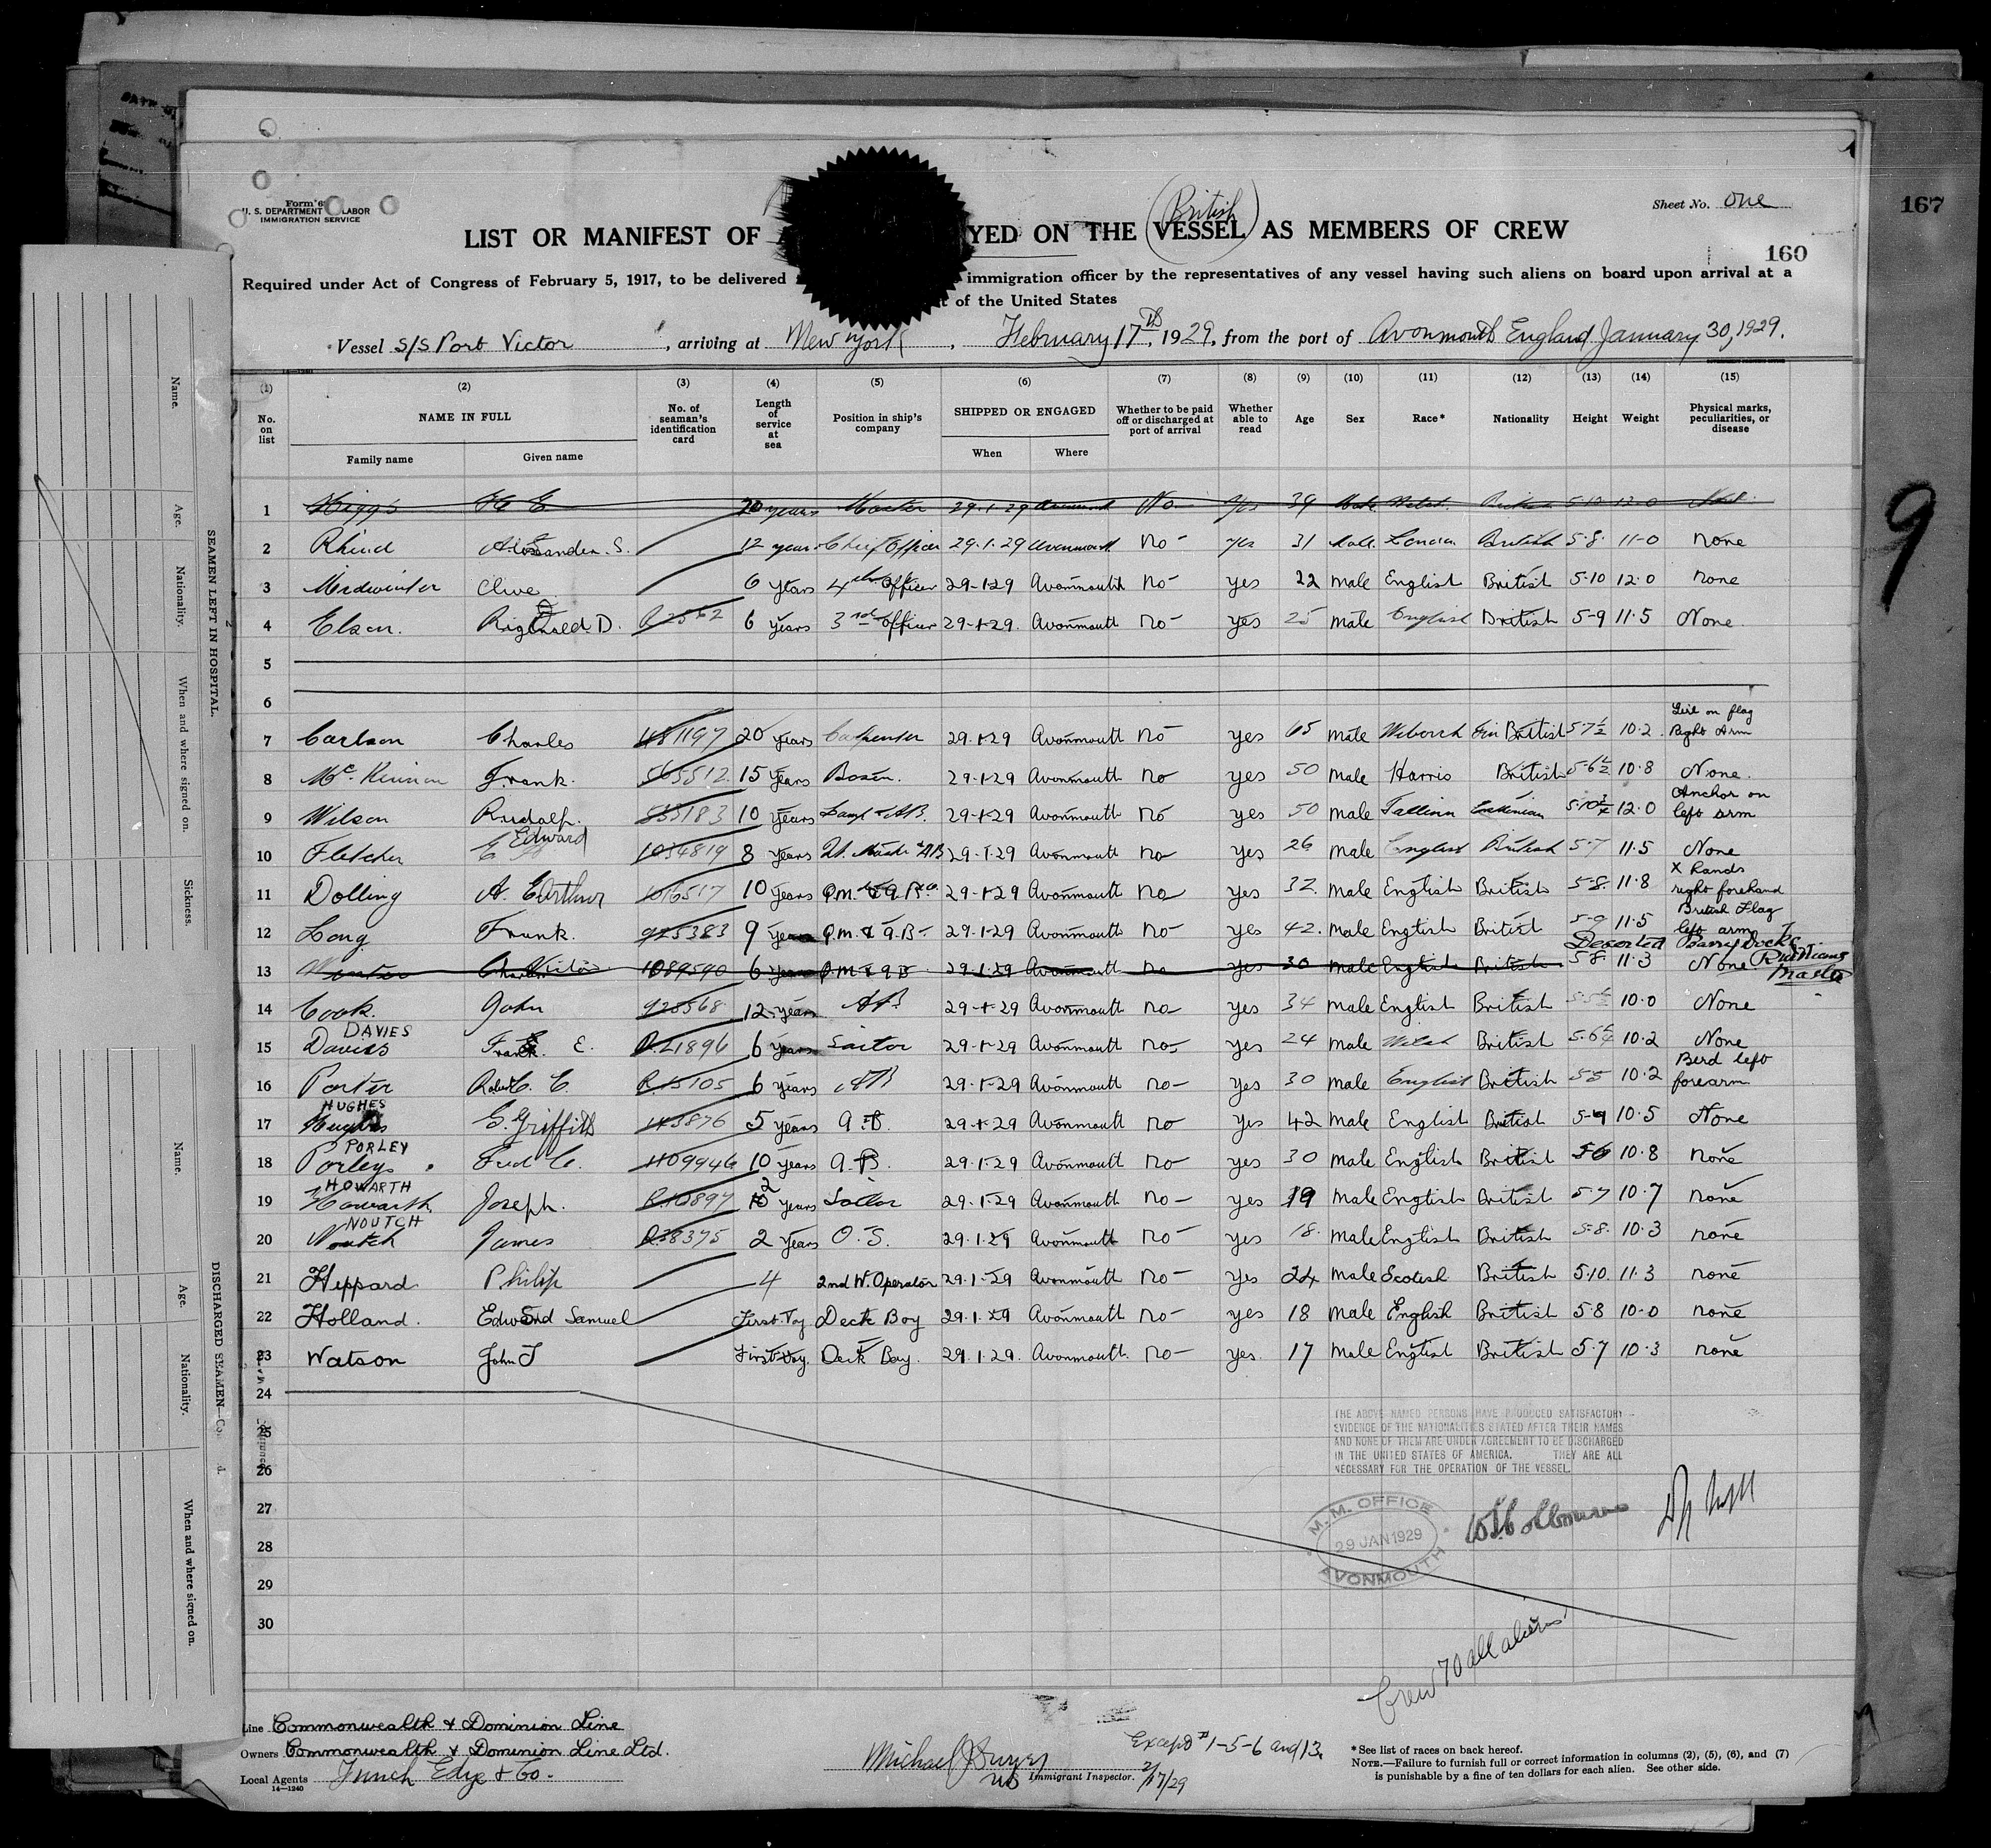 167
Form 6
U. S. DEPARTMENT LABOR
IMMIGRATION SERVICE
Sheet No. one
(British)
LIST OR MANIFEST OF YED ON THE VESSEL AS MEMBERS OF CREW
160
Required under Act of Congress of February 5, 1917, to be delivered immigration officer by the representatives of any vessel having such aliens on board upon arrival at a
of the United States
Vessel S/S Port Victor, arriving at New York, February 17th, 1929, from the port of Avonmouth England January 30, 1929.
(1) (2) (3) (4) (5) (6) (7) (8) (9) (10) (11) (12) (13) (14) (15)
No. on list NAME IN FULL Family name Given name No. of seaman's identification card Length of service at sea Position in ship's company SHIPPED OR ENGAGED When Where Whether to be paid off or discharged at port of arrival Whether able to read Age Sex Race* Nationality Height Weight Physical marks, peculiarities, or disease
1 Higgs H E 20 years Master 29.1.29 No yes 39 Male British 12.0
2 Rhind Alexander. S. 12 years Chief Officer 29.1.29 Avonmouth no yes 31 Male British 5.8. 11-0 none
3 Midwinter Clive 6 years 4th Officer 29-1-29 Avonmouth no yes 22 male English British 5.10 12.0 none
4 Elson. D. R 2562 6 years 3rd Officer 29-1-29. Avonmouth no yes 25 male English British 5-9 11.5 None.
5
6
7 Carlson Charles 481197 20 years Carpenter 29.1.29 Avonmouth no yes 65 male British 5.7½ 10.2 Girl on flag Right Arm
8 Mc.Kinnon Frank. 565512 15 years Bosun. 29-1-29 Avonmouth no yes 50 male Harris British 5-6½ 10.8 None.
9 Wilson Rudolf. 10 years Lamp & AB. 29-1-29 Avonmouth no yes 50 male Tallinn 12.0 Anchor on left arm
10 Fletcher E Edward 1034819 8 years AB 29-1-29 Avonmouth no yes 26 male English British 5.7 11.5 None
11 Dolling A. E Arthur 1016517 10 years 29-1-29 Avonmouth no yes 32 male English British 5-8. 11.8 X hands right forehand
12 Long Frank. 925383 9 years Q.M. & A.B 29-1-29 Avonmouth no yes 42. male English British 5-9 11.5 British Flag left arm
Deserted Barry Dock
R Williams Master
13 Victor 1089590 6 years Q.M & A B 29.1.29 Avonmouth no yes 30 male English British 5 8. 11.3 None
14 Cook. John 925568 12 years AB 29-1-29 Avonmouth no yes 34 male English British 10.0 None
DAVIES
15 Davies Frank. E. R.21896 6 years Sailor 29.1.29 Avonmouth no yes 24 male Welsh British 10.2 None
16 Porter Robert C. R.15105 6 years AB 29.1.29 Avonmouth no yes 30 male English British 5.5 10.2 Bird left forearm
HUGHES
17 Hughes G. Griffith 143876 5 years A.B. 29.1.29 Avonmouth no yes 42 male English British 5-9 10.5 None
PORLEY
18 Porleys Fred C. 1109946 10 years A.B. 29.1.29 Avonmouth no yes 30 male English British 5 6 10.8 none
HOWARTH
19 Howarth Joseph. R.10897 2 years Sailor 29.1.29 Avonmouth no yes 19 male English British 5.7 10.7 none
NOUTCH
20 Noutch James R38375 2 years O.S. 29.1.29 Avonmouth no yes 18. male English British 5-8. 10.3 none
21 Heppard Philip 4 2nd W. Operator 29.1.29 Avonmouth no yes 24 male Scotish British 5.10. 11.3 none
22 Holland. Edward Samuel First Voy Deck Boy 29.1.29 Avonmouth no yes 18 male English British 5.8 10.0 none
23 Watson John J First Voy. Deck Boy. 29.1.29. Avonmouth. no yes. 17 male English British 5.7 10.3 none
24
25
26
27
28
29
30
THE ABOVE NAMED PERSONS HAVE PRODUCED SATISFACTORY
EVIDENCE OF THE NATIONALITIES STATED AFTER THEIR NAMES
AND NONE OF THEM ARE UNDER AGREEMENT TO BE DISCHARGED
IN THE UNITED STATES OF AMERICA. THEY ARE ALL
NECESSARY FOR THE OPERATION OF THE VESSEL.
M. M. OFFICE
29 JAN 1929
AVONMOUTH
Crew 70 all aliens
Line Commonwealth & Dominion Line
Owners Commonwealth & Dominion Line Ltd.
Local Agents Funch Edye & Co.
14—1240
Michael J
Immigrant Inspector.
Except # 1-5-6 and 13.
2/17/29
*See list of races on back hereof.
NOTE.—Failure to furnish full or correct information in columns (2), (5), (6), and (7)
is punishable by a fine of ten dollars for each alien. See other side.
9
SEAMEN LEFT IN HOSPITAL.
Name. Age. Nationality. When and where signed on. Sickness.
DISCHARGED SEAMEN—Co d.
Name. Age. Nationality. When and where signed on.